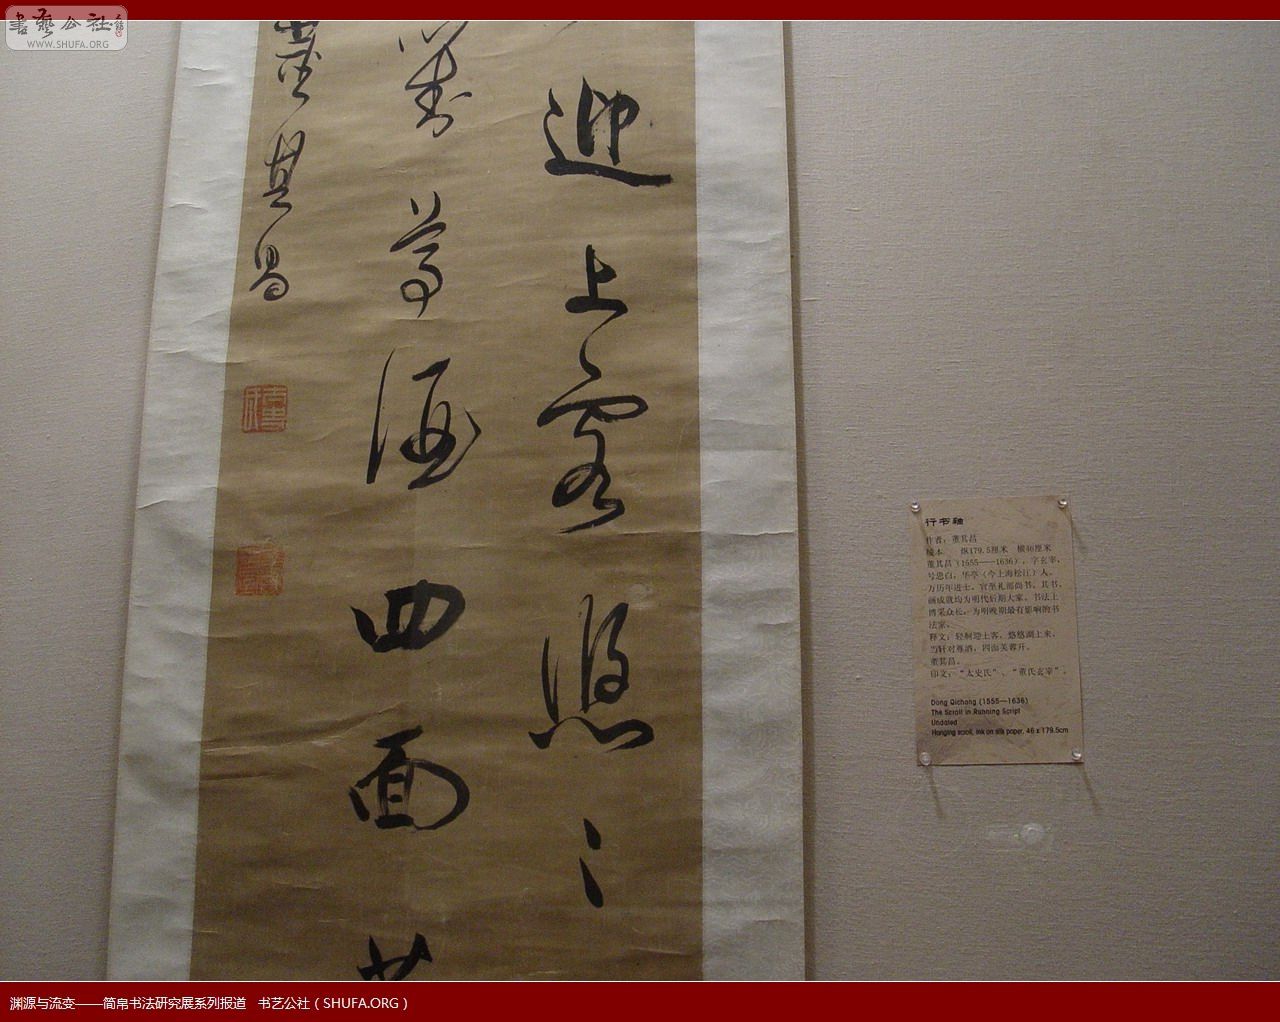 書藝公社
WWW.SHUFA.ORG
迎上客悠〻
對尊酒四面芙
董其昌
行书轴
作者：董其昌
绫本　纵179.5厘米　横46厘米
董其昌（1555——1636），字玄宰，
号思白，华亭（今上海松江）人。
万历年进士，官至礼部尚书。其书、
画成就均为明代后期大家。书法上
博采众长，为明晚期最有影响的书
法家。
释文：轻舸迎上客，悠悠湖上来，
当轩对尊酒，四面芙蓉开。
董其昌。
印文：“太史氏”、“董氏玄宰”。
Dong Qichang (1555—1636)
The Scroll in Running Script
Undated
Hanging scroll, ink on silk paper, 46 x 179.5cm
渊源与流变——简帛书法研究展系列报道　书艺公社（SHUFA.ORG）